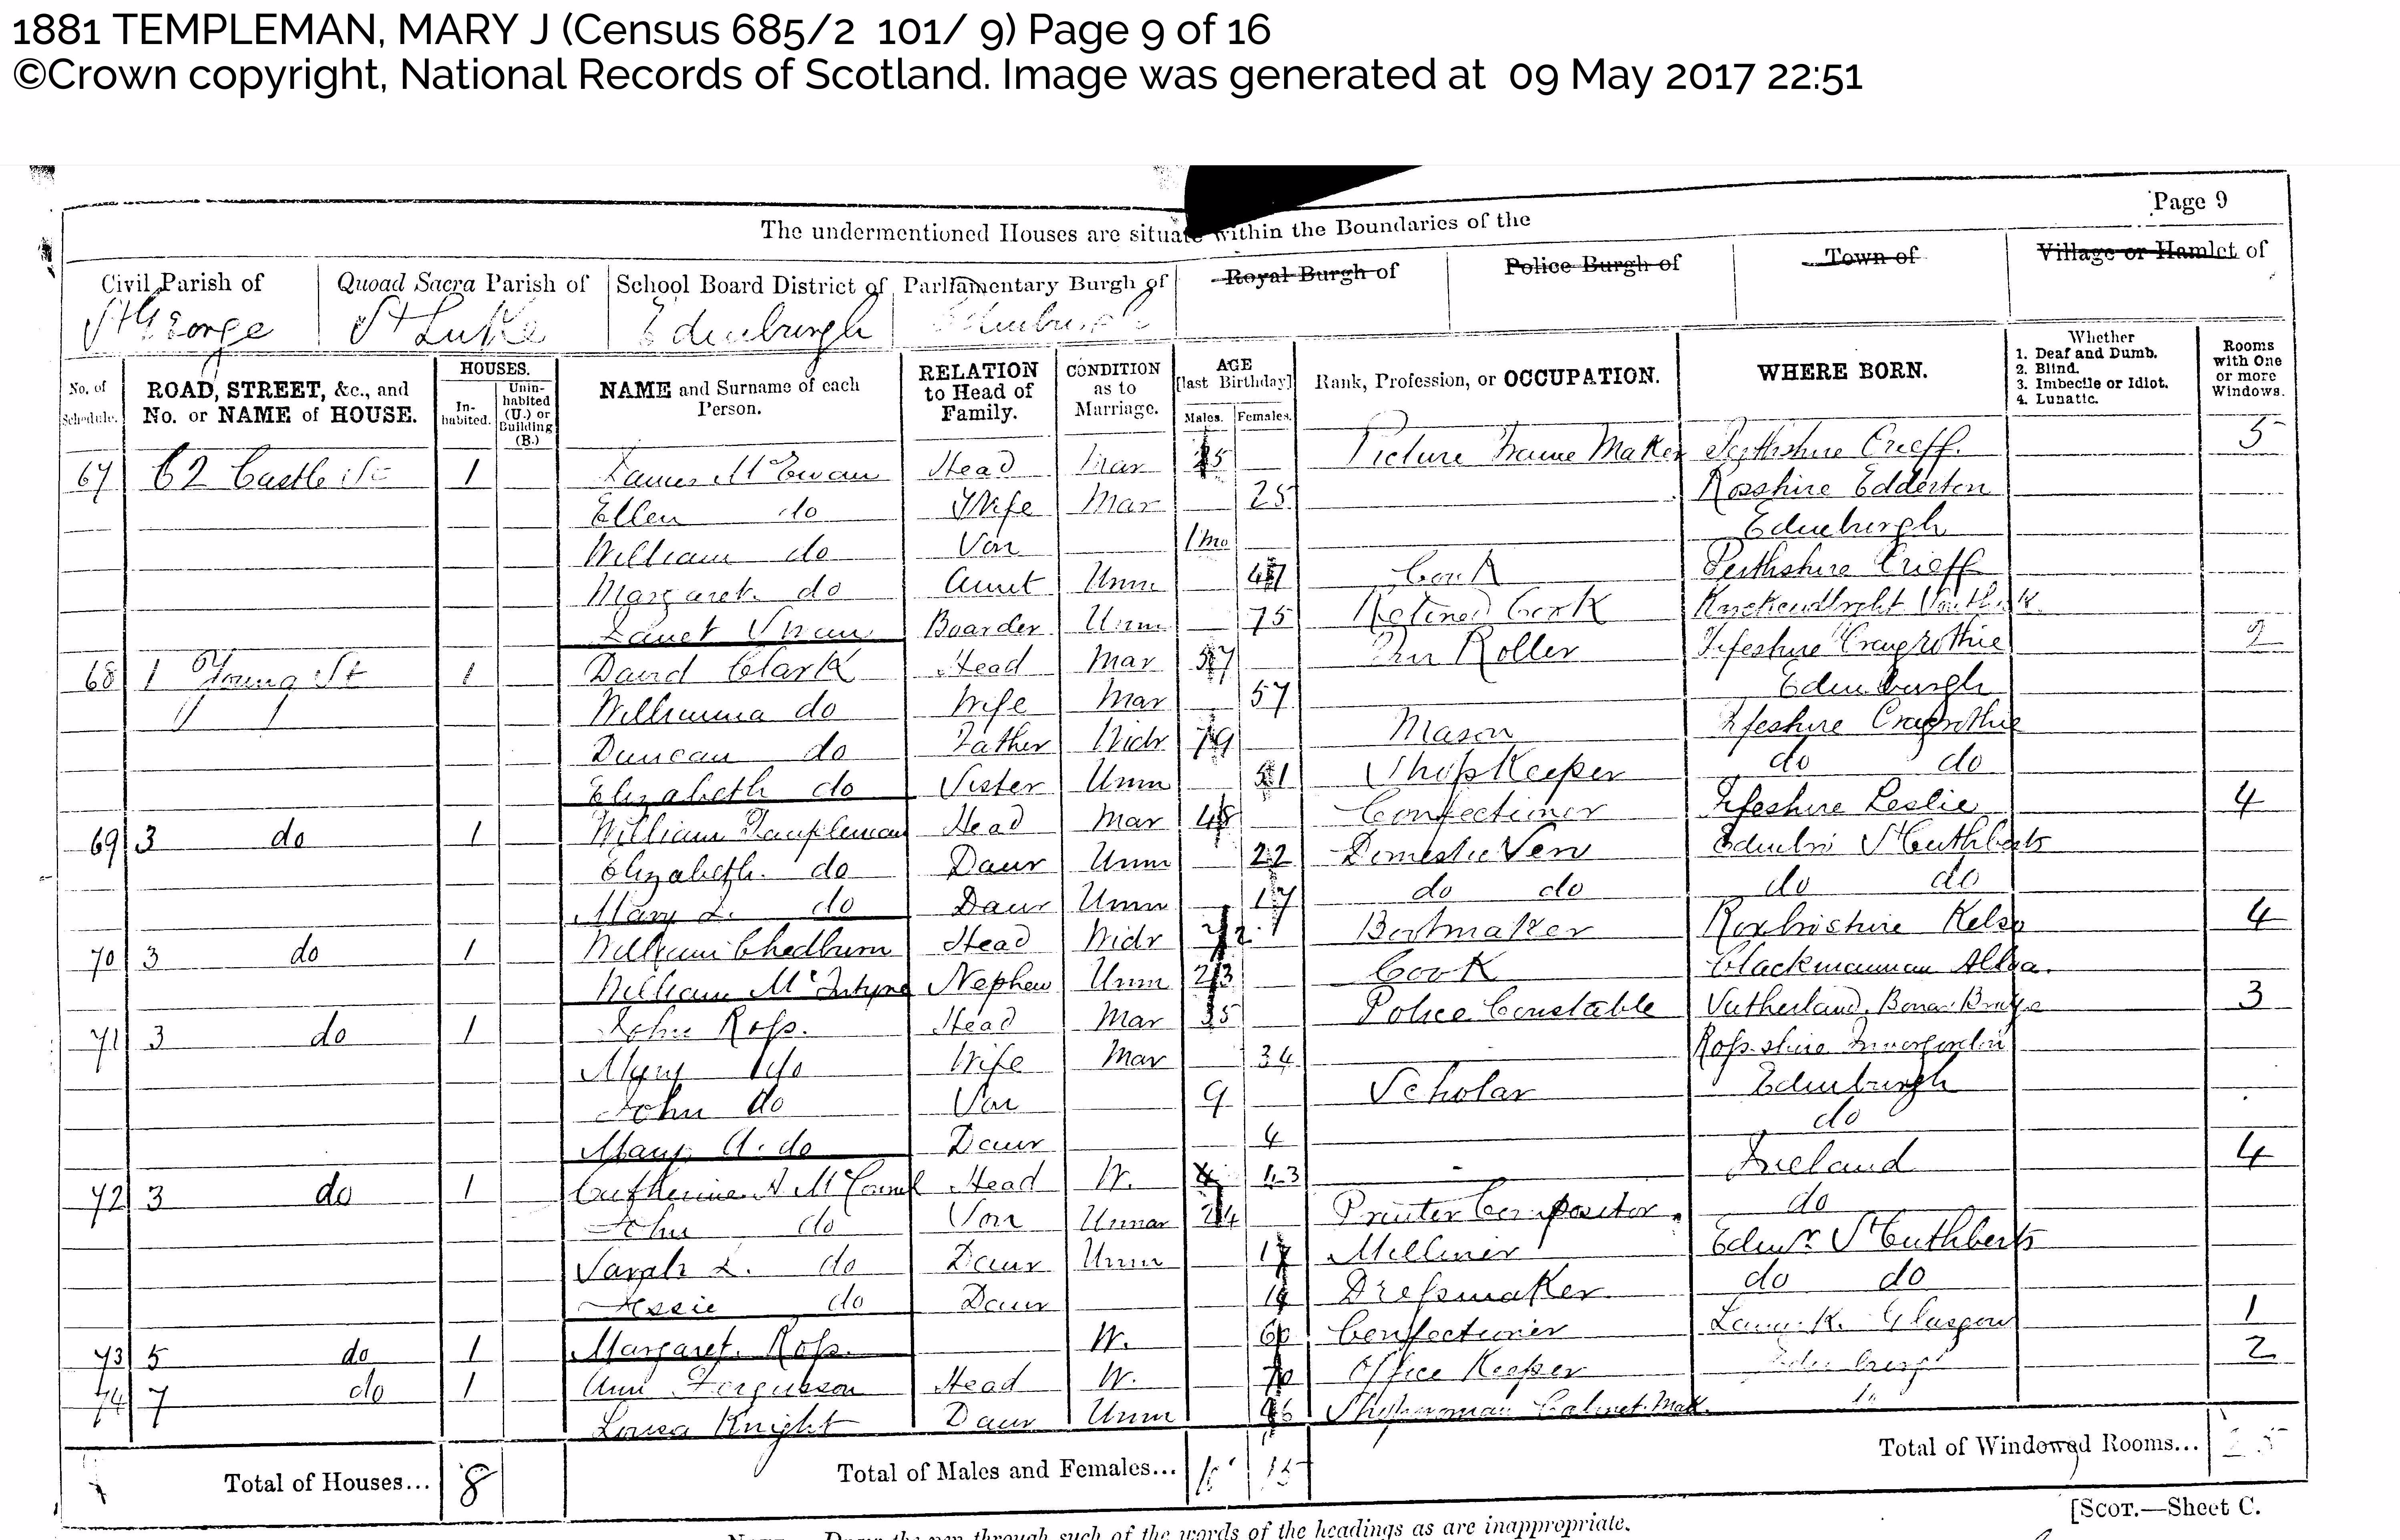 1881 TEMPLEMAN, MARY J (Census 685/2 101/ 9) Page 9 of 16
©Crown copyright, National Records of Scotland. Image was generated at 09 May 2017 22:51
Page 9
The undermentioned Houses are situate within the Boundaries of the
Civil Parish of Quoad Sacra Parish of School Board District of Parliamentary Burgh of Royal Burgh of Police Burgh of Town of Village or Hamlet of
St George St Luke Edinburgh Edinburgh
No. of Schedule. ROAD, STREET, &c., and No. or NAME of HOUSE. HOUSES. In-habited. Unin-habited (U.) or Building (B.) NAME and Surname of each Person. RELATION to Head of Family. CONDITION as to Marriage. AGE [last Birthday] Males. Females. Rank, Profession, or OCCUPATION. WHERE BORN. Whether 1. Deaf and Dumb. 2. Blind. 3. Imbecile or Idiot. 4. Lunatic. Rooms with One or more Windows.
67 62 Castle St 1 James McEwan Head Mar 25 Picture Frame Maker Perthshire Crieff 5
Ellen do Wife Mar 25 Rosshire Edderton
William do Son 1mo Edinburgh
Margaret do Aunt Unm 47 Cook Perthshire Crieff
Janet Boarder Unm 75 Retired Cook
68 1 Young St 1 David Clark Head Mar 57 Roller Fifeshire Craigrothie 2
Williamina do Wife Mar 57 Edinburgh
Duncan do Father Widr 79 Mason Fifeshire Craigrothie
Elizabeth do Sister Unm 51 ShopKeeper do do
69 3 do 1 William Templeman Head Mar 48 Confectioner Fifeshire Leslie 4
Elizabeth do Daur Unm 22 Domestic Serv Edinbr St Cuthberts
Mary J. do Daur Unm 17 do do do do
70 3 do 1 William Chedburn Head Widr 72 Bootmaker Roxbrishire Kelso 4
William McIntyre Nephew Unm 23 Cook Clackmannan Alloa.
71 3 do 1 John Ross. Head Mar 35 Police Constable Sutherland. Bonar Bridge 3
Mary do Wife Mar 34 Ross-shire Invergordon
John do Son 9 Scholar Edinburgh
Mary A. do Daur 4 do
72 3 do 1 Catherine A McConnel Head W. 43 Ireland 4
John do Son Unmar 24 Printer Compositor. do
Sarah J. do Daur Unm 17 Milliner Edinr St Cuthberts
Jessie do Daur 14 Dressmaker. do do
73 5 do 1 Margaret Ross. W. 60 Confectioner Lanark. Glasgow 1
74 7 do 1 Ann Fergusson Head W. 70 Office Keeper Edinburgh 2
Louisa Knight Daur Unm 46 Shopwoman Cabinet. Mak. do
Total of Houses... 8 Total of Males and Females... 10 15 Total of Windowed Rooms... 25
[Scot.—Sheet C.
Note.—Draw the pen through such of the words of the headings as are inappropriate.